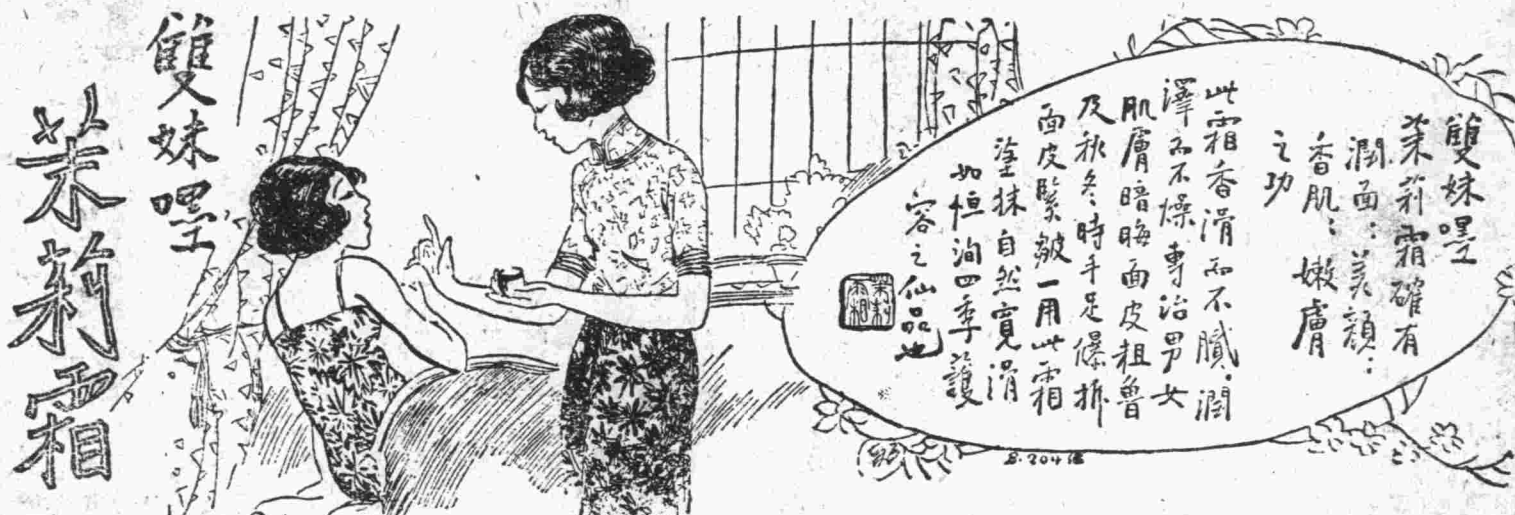 雙妹嚜
茉莉霜確有
潤面：美顔：
香肌：嫩膚
之功
此霜香滑而不膩潤
澤而不燥專治男女
肌膚暗晦面皮粗魯
及秋冬時手足爆拆
面皮緊皺一用此霜
塗抹自然寬滑
如恒洵四季護
容之仙品也
茉莉霜相
雙妹嚜
茉莉霜